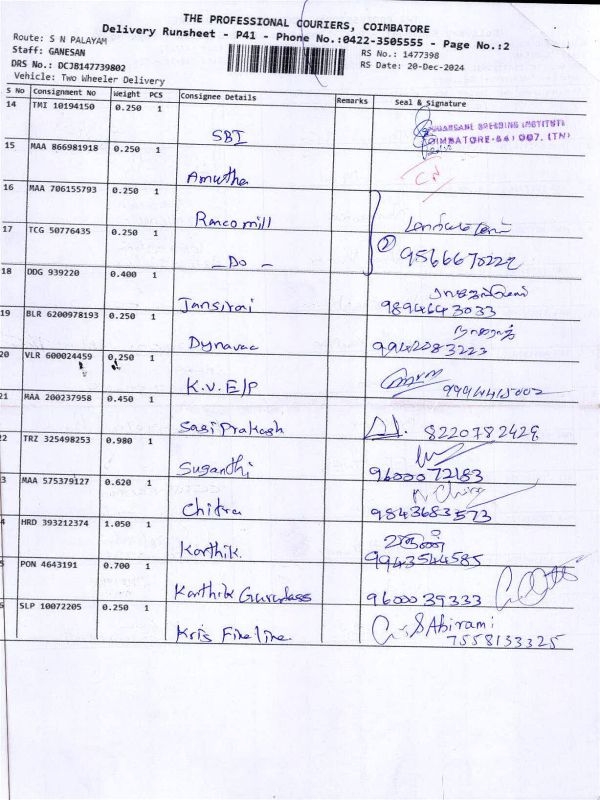 THE PROFESSIONAL COURIERS, COIMBATORE
Delivery Runsheet - P41 - Phone No.:0422-3505555 - Page No.:2
Route: S N PALAYAM
Staff: GANESAN
RS No.: 1477398
DRS No.: DCJ8147739802
RS Date: 20-Dec-2024
Vehicle: Two Wheeler Delivery
S No Consignment No Weight PCS Consignee Details Remarks Seal & Signature
14 TMI 10194150 0.250 1
SBI
BREEDING INSTITUTE
COIMBATORE-641 007. (TN)
15 MAA 866981918 0.250 1
Amutha
CN
16 MAA 706155793 0.250 1
Ranco mill
17 TCG 50776435 0.250 1
- Do -
② 9566670222
18 DDG 939220 0.400 1
Jansirai
9894643033
19 BLR 6200978193 0.250 1
Dynavac
9942083223
20 VLR 600024459 0.250 1
K.V. E/P
9994415002
21 MAA 200237958 0.450 1
SasiPrakash
8220782429
22 TRZ 325498253 0.980 1
Suganthi
9600072183
3 MAA 575379127 0.620 1
Chitra
9843683573
4 HRD 393212374 1.050 1
Karthik.
9943544585
5 PON 4643191 0.700 1
Karthik Gurudass
9600039333
SLP 10072205 0.250 1
Kris Fineline
S Abirami
7558133325